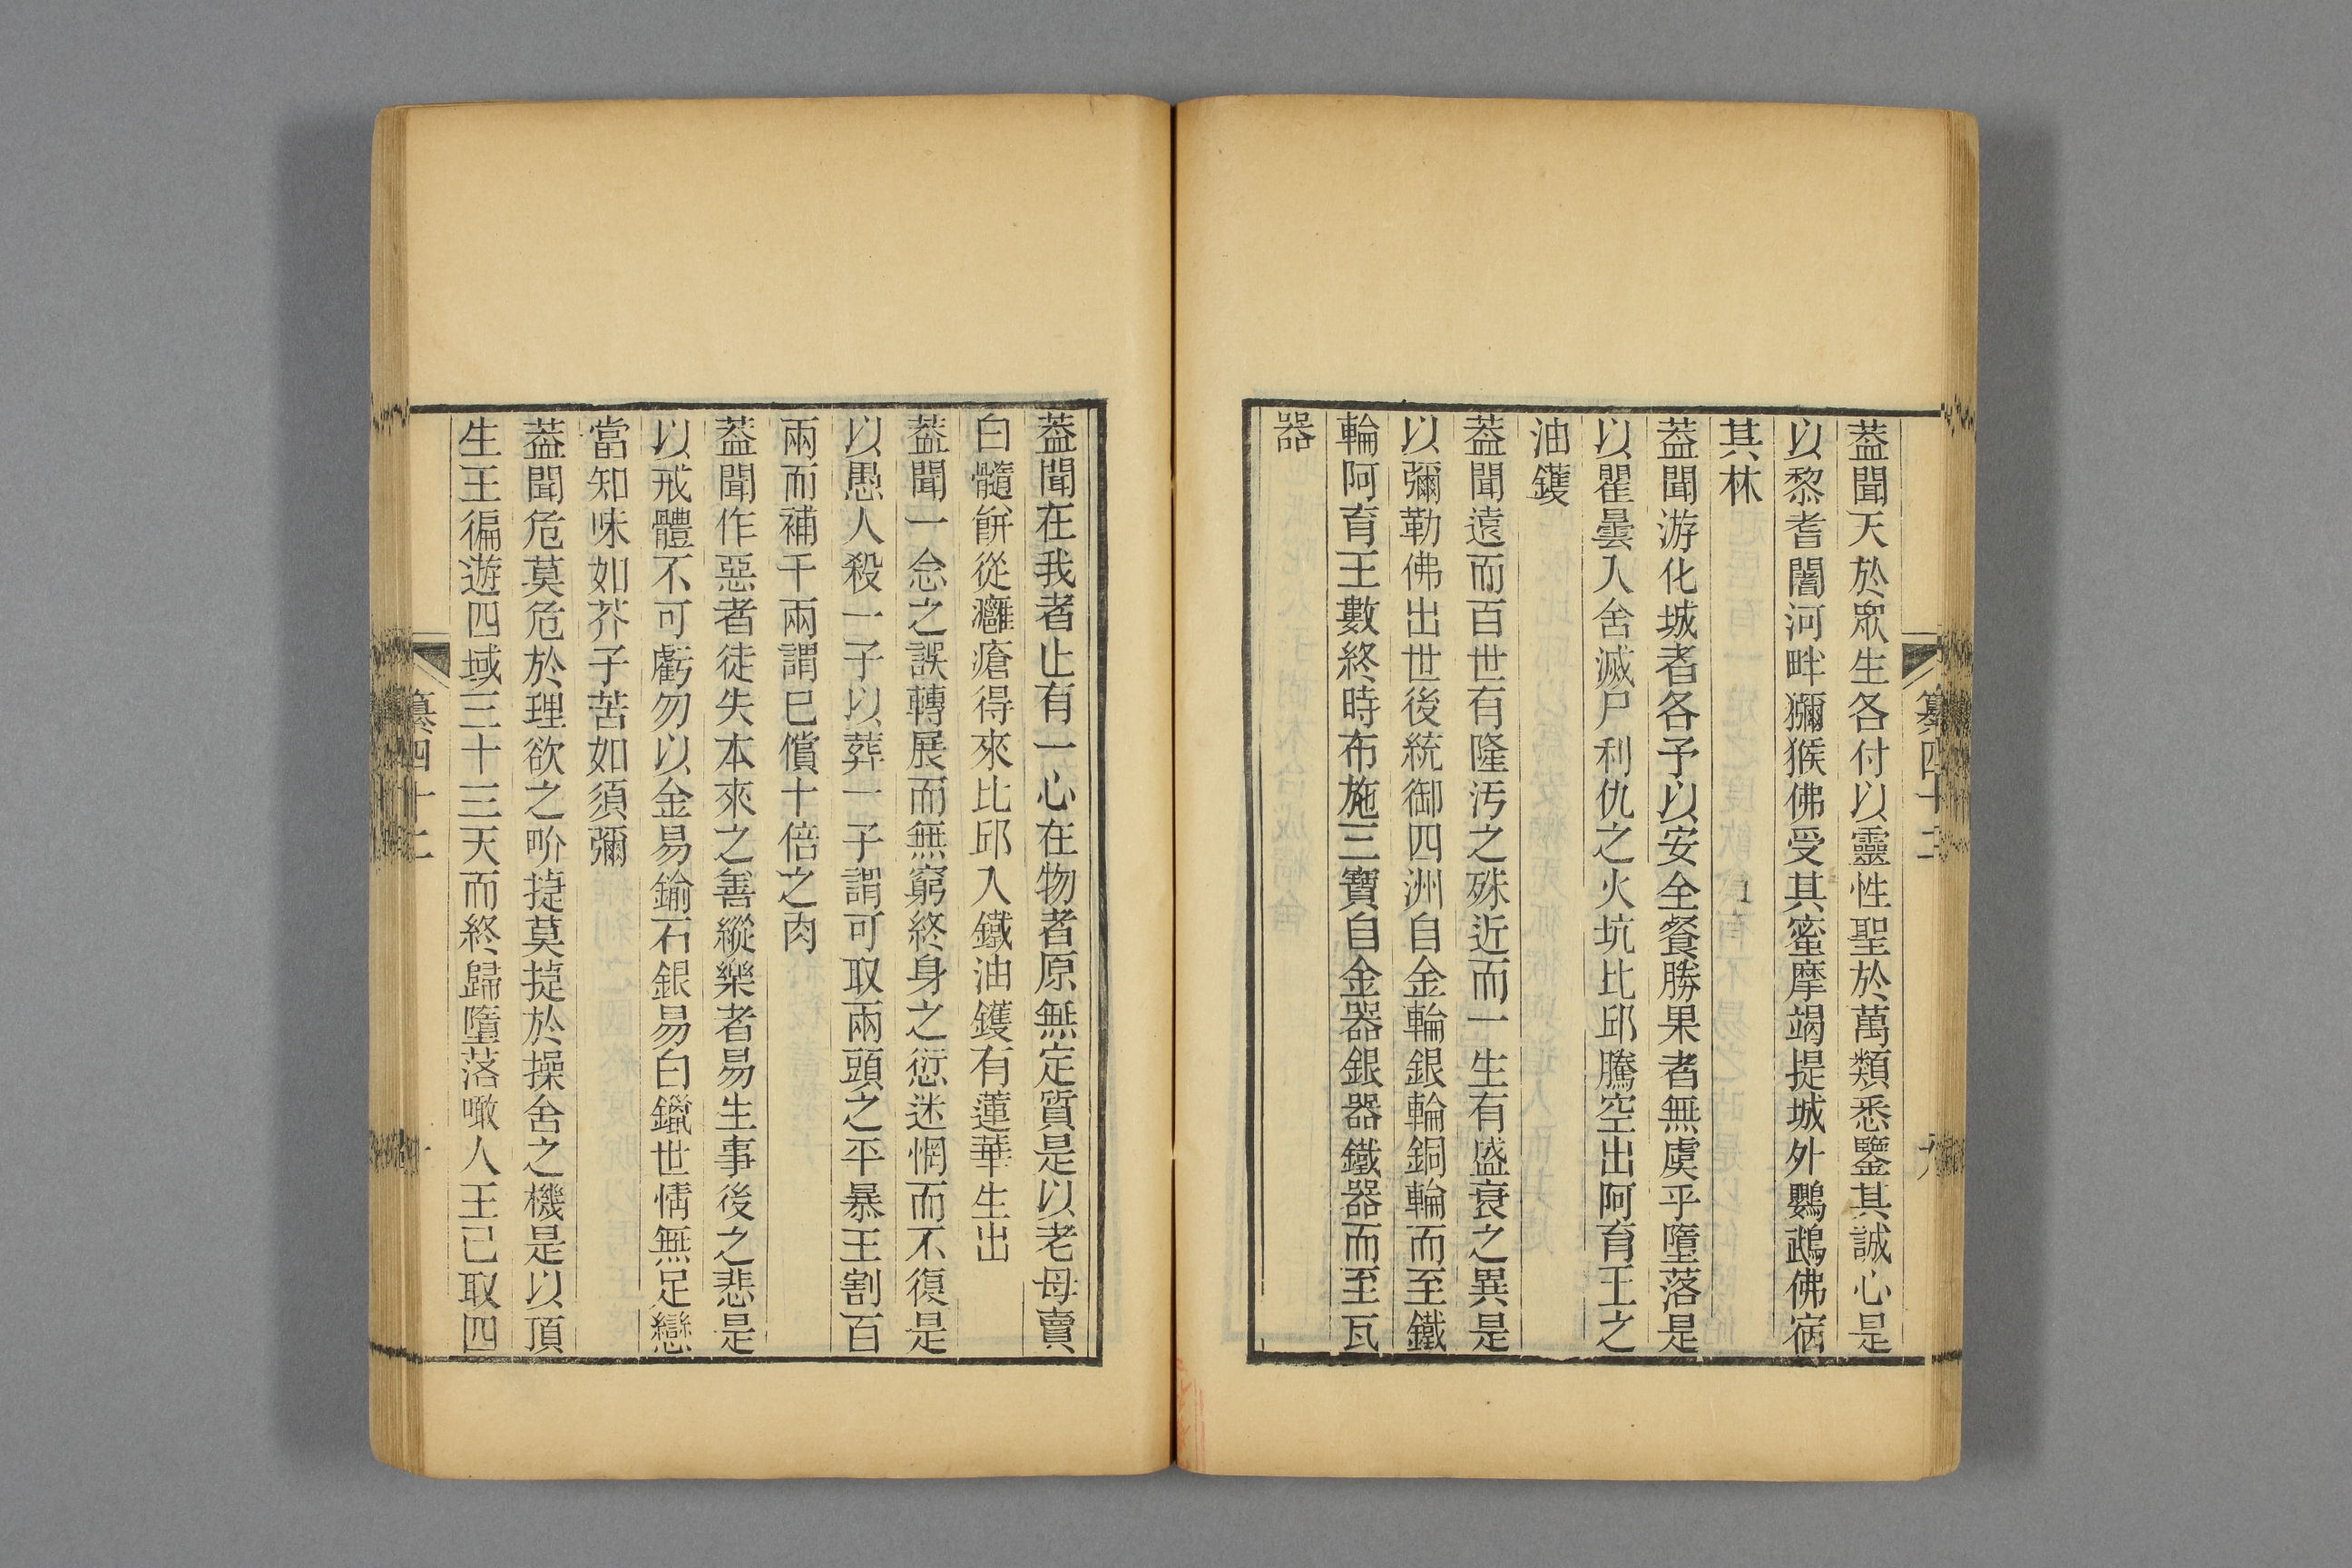 葢聞天於眾生各付以靈性聖於萬類悉鑒其誠心是
以黎耆闍河畔獼猴佛受其蜜摩竭提城外鸚鵡佛宿
其林
葢聞游化城者各予以安全餐勝果者無虞乎墮落是
以瞿曇入舍滅尸利仇之火坑比邱騰空出阿育王之
油鑊
葢聞遠而百世有隆汚之殊近而一生有盛衰之異是
以彌勒佛出世後統御四洲自金輪銀輪銅輪而至鐵
輪阿育王數終時布施三寶自金器銀器鐵器而至瓦
器
葢聞在我者止有一心在物者原無定質是以老母賣
白髓餅從癰瘡得來比邱入鐵油鑊有蓮華生出
葢聞一念之誤轉展而無窮終身之愆迷惘而不復是
以愚人殺一子以葬一子謂可取兩頭之平暴王割百
兩而補千兩謂已償十倍之肉
葢聞作惡者徒失本來之善縱樂者易生事後之悲是
以戒體不可虧勿以金易鍮石銀易白鑞世情無足戀
當知味如芥子苦如須彌
葢聞危莫危於理欲之畍捷莫捷於操舍之機是以頂
生王徧遊四域三十三天而終歸墮落噉人王已取四
纂四十二